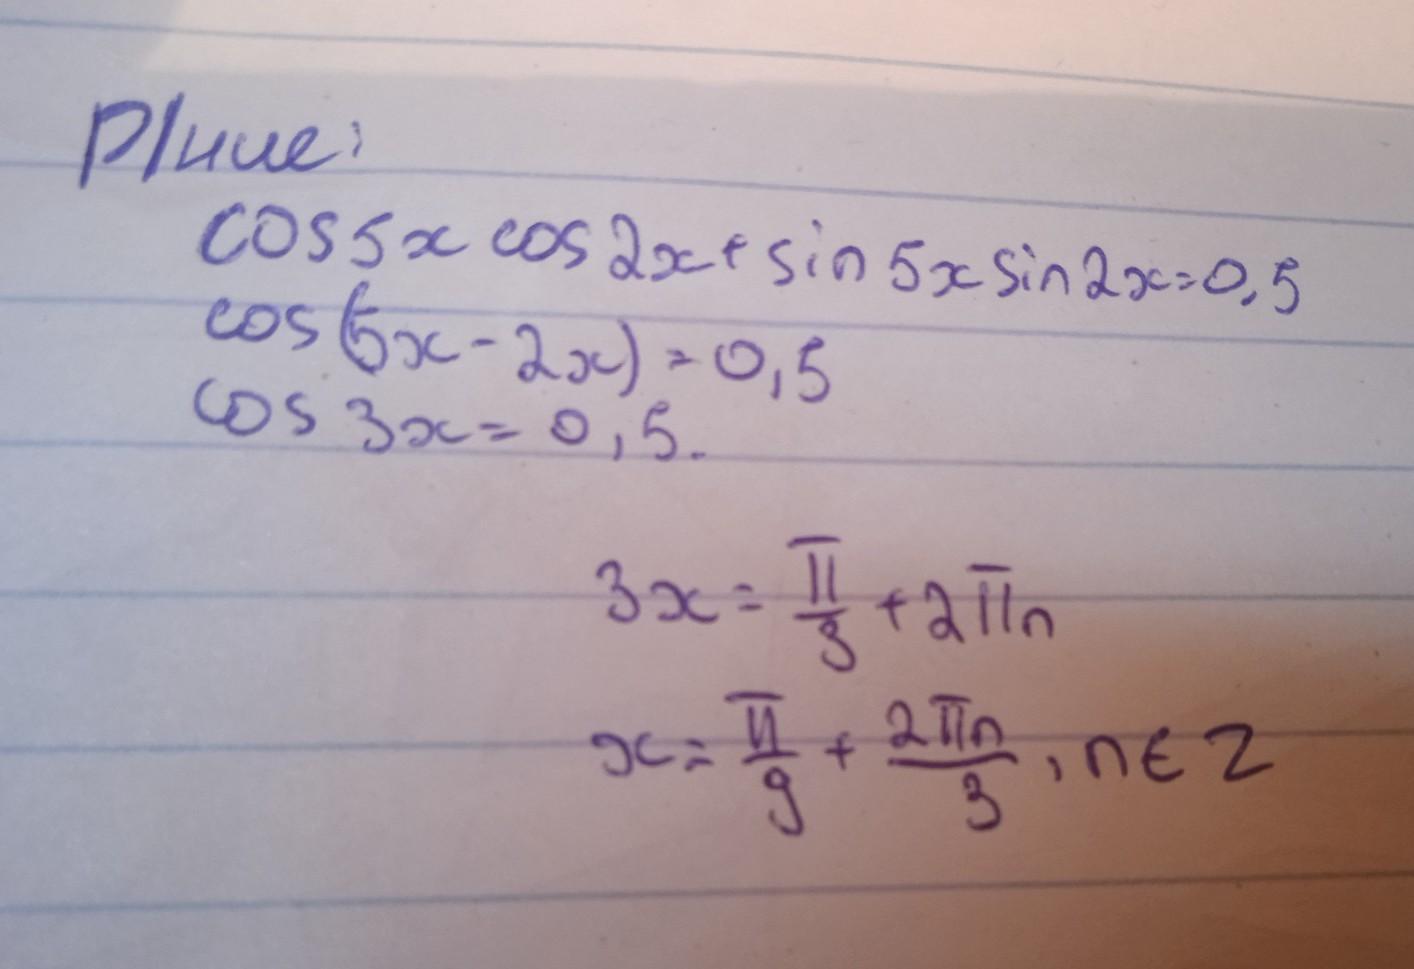 Р/ние:
cos5x cos2x+sin5xsin2x=0,5
cos(5x-2x)=0,5
cos3x=0,5.
3x=π/3+2πn
x=π/9+2πn/3, n∈Z